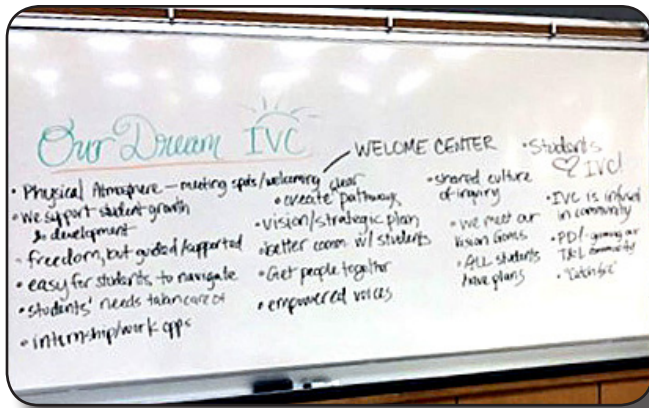 Our Dream IVC
• Physical Atmosphere — meeting spots/welcoming
WELOME CENTER
• We support student growth
& development
- freedom, but guided/supported
• easy for students to navigate
• students' needs taken care of
• internship/work opps
clear
• create pathways
• vision/strategic plan
• better comm w/ students
• Get people together
• empowered voices
• shared culture
of inquiry
• we meet our
Vision Goals
• ALL students
have plans
• Students
♡ IVC!
• IVC is infused
in community
• PD/ growing our
T&L community
• "Catch fire"